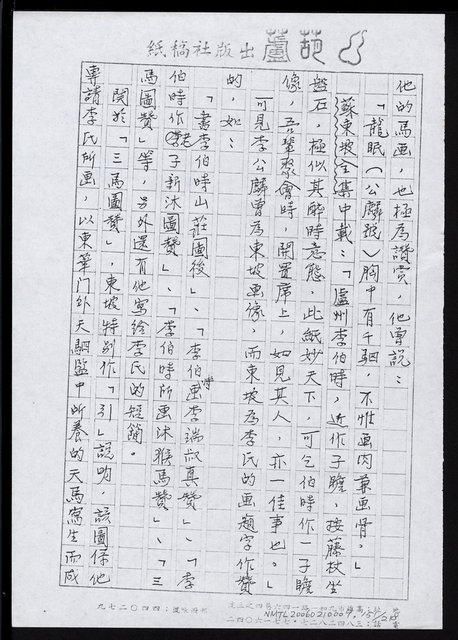 葫蘆出版社稿紙
他的馬画，也極為讚賞，他曾説：
「龍眠（公麟號）胸中有千駟，不惟画肉兼画骨。」
蘇東坡全集中載：「廬州李伯時，近作子瞻，按藤杖坐
盤石，極似其醉時意態。此紙妙天下，可乞伯時作一子瞻
像，吾輩聚會時，開置席上，如見其人，亦一佳事也。」
可見李公麟曾為東坡画像，而東坡為李氏的画題字作贊
的，如：
「書李伯時山莊圖後」、「李伯時画李端叔真贊」、「李
伯時作老子新沐圖贊」、「李伯時所画沐猴馬贊」、「三
馬圖贊」等，另外還有他寫給李氏的短簡。
関於「三馬圖贊」，東坡特別作「引」説明，該圖係他
專請李氏所画，以東華门外天駟監中所養的天馬寫生而成
NMTL20060210009